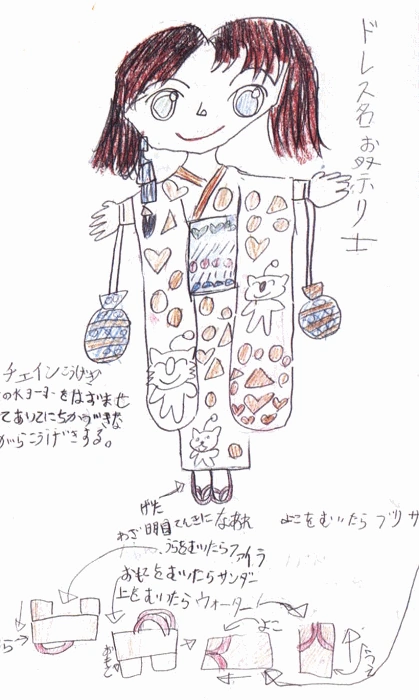 ドレス名 お祭り士
チェインこうげき
の水ヨーヨーをはずませ
てあいてにちかづきな
がらこうげきする。
げた
わざ 明日てんきになあれ
よこをむいたらブリザ
うらをむいたらファイラ
おもてをむいたらサンダー
上をむいたらウォーター
よこ
おもて
うら